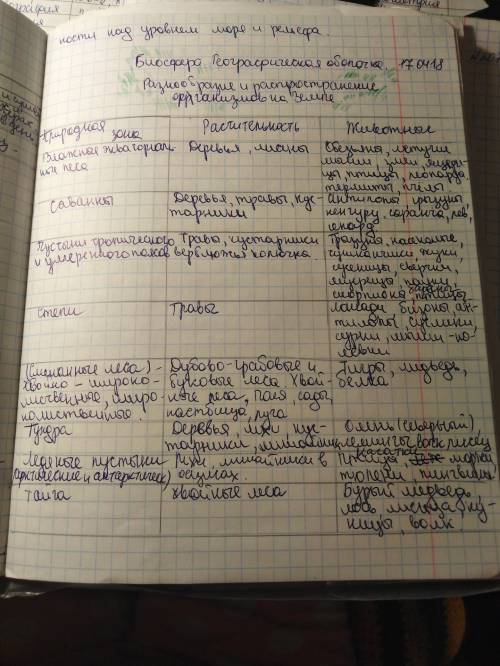 ности над уровнем моря и рельефа.
Биосфера. Географическая оболочка. 17.04.18
Разнообразие и распространение
организмов на Земле
Природная зона
Растительность
Животные
Влажные экваториаль-
ные леса
Деревья, лианы
Обезьяны, летучие
мыши, змеи, ящери-
цы, птицы, леопарды,
термиты, пчёлы
Саванны
Деревья, травы, кус-
тарники
Антилопы, грызуны
кенгуру, саранча, лев,
гепард
Пустыни тропического
и умеренного пояса
Травы, кустарники
верблюжья колючка.
Грызуны, насекомые,
тушканчики, жуки,
гусеницы, сверчки,
ящерицы, пауки,
скорпионы, птицы
Степи
Травы
Лошади, бизоны, ан-
тилопы, суслики,
сурки, мыши-по-
левки
(Смешанные леса) -
хвойно - широко-
лиственные, широ-
колиственные.
Дубово-грабовые и
буковые леса, хвой-
ные леса, поля, сады,
пастбища, луга
Тигры, медведь,
белка
Тундра
Деревья, мхи, кус-
тарники, лишайники
Олень (северный),
лемминги, волк, песец
Ледяные пустыни
(арктические и антарктические)
Мхи, лишайники в
оазисах.
касатки
Птицы, моржи
тюлени, пингвины
Тайга
Хвойные леса
Бурый медведь,
лось, лисица, ку-
ницы, волк.